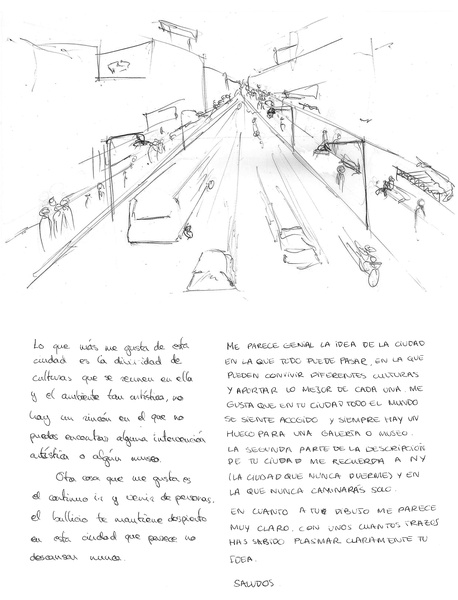 Lo que más me gusta de esta
ciudad es la divisidad de
culturas que se reunen en ella
y el ambiente tan artístico, no
hay un rincón en el que no
puedas encontrar alguna intervención
artística o algún museo.
Otra cosa que me gusta es
el continuo ir y venir de personas,
el bullicio te mantiene despierto
en esta ciudad que parece no
descansar nunca.
ME PARECE GENIAL LA IDEA DE LA CIUDAD
EN LA QUE TODO PUEDE PASAR, EN LA QUE
PUEDEN CONVIVIR DIFERENTES CULTURAS
Y APORTAR LO MEJOR DE CADA UNA. ME
GUSTA QUE EN TU CIUDAD TODO EL MUNDO
SE SIENTE ACOGIDO Y SIEMPRE HAY UN
HUECO PARA UNA GALERÍA O MUSEO.
LA SEGUNDA PARTE DE LA DESCRIPCIÓN
DE TU CIUDAD ME RECUERDA A NY
(LA CIUDAD QUE NUNCA DUERME) Y EN
LA QUE NUNCA CAMINARÁS SOLO.
EN CUANTO A TU DIBUJO ME PARECE
MUY CLARO, CON UNOS CUANTOS TRAZOS
HAS SABIDO PLASMAR CLARAMENTE TU
IDEA.
SALUDOS.